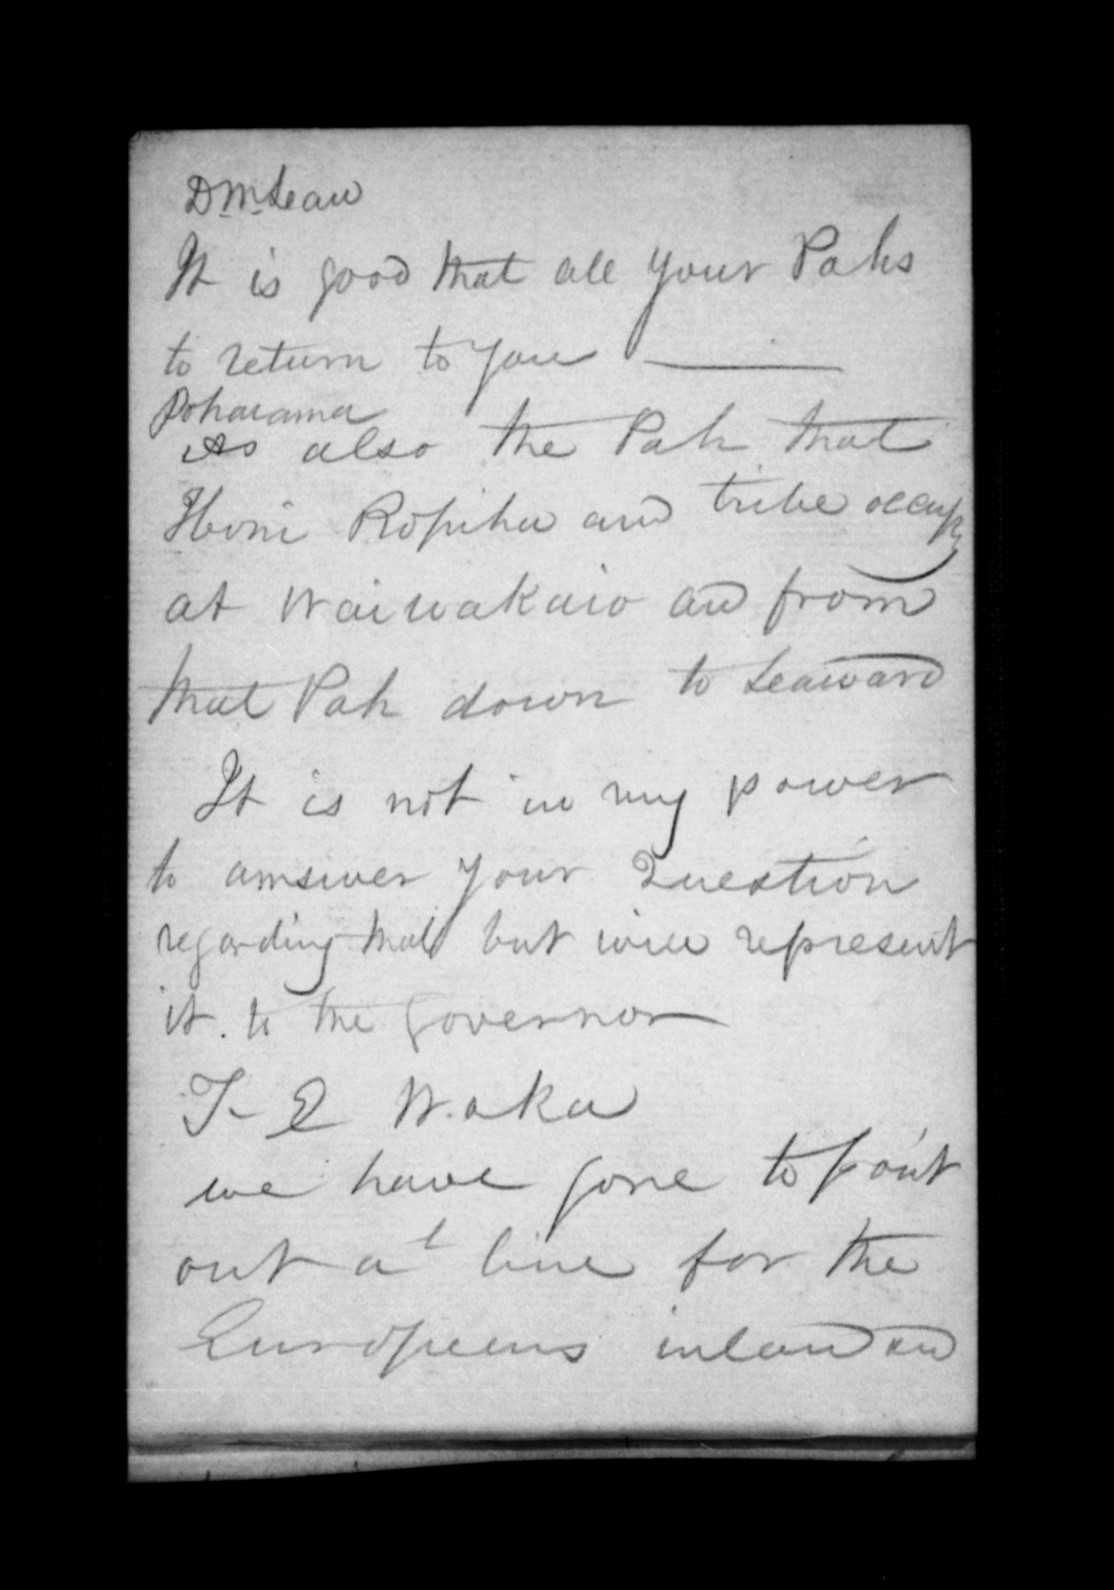 D McLean
It is good that all your Pahs
to return to you ———
Poharama
As also the Pah that
Honi Ropiha and tribe occupy
at Waiwakaio and from
that Pah down to Seaward
It is not in my power
to amswer your Question
regarding that but will represent
it. to the Governor
T- E Waka
we have gone to point
out a line for the
Europeans inland and